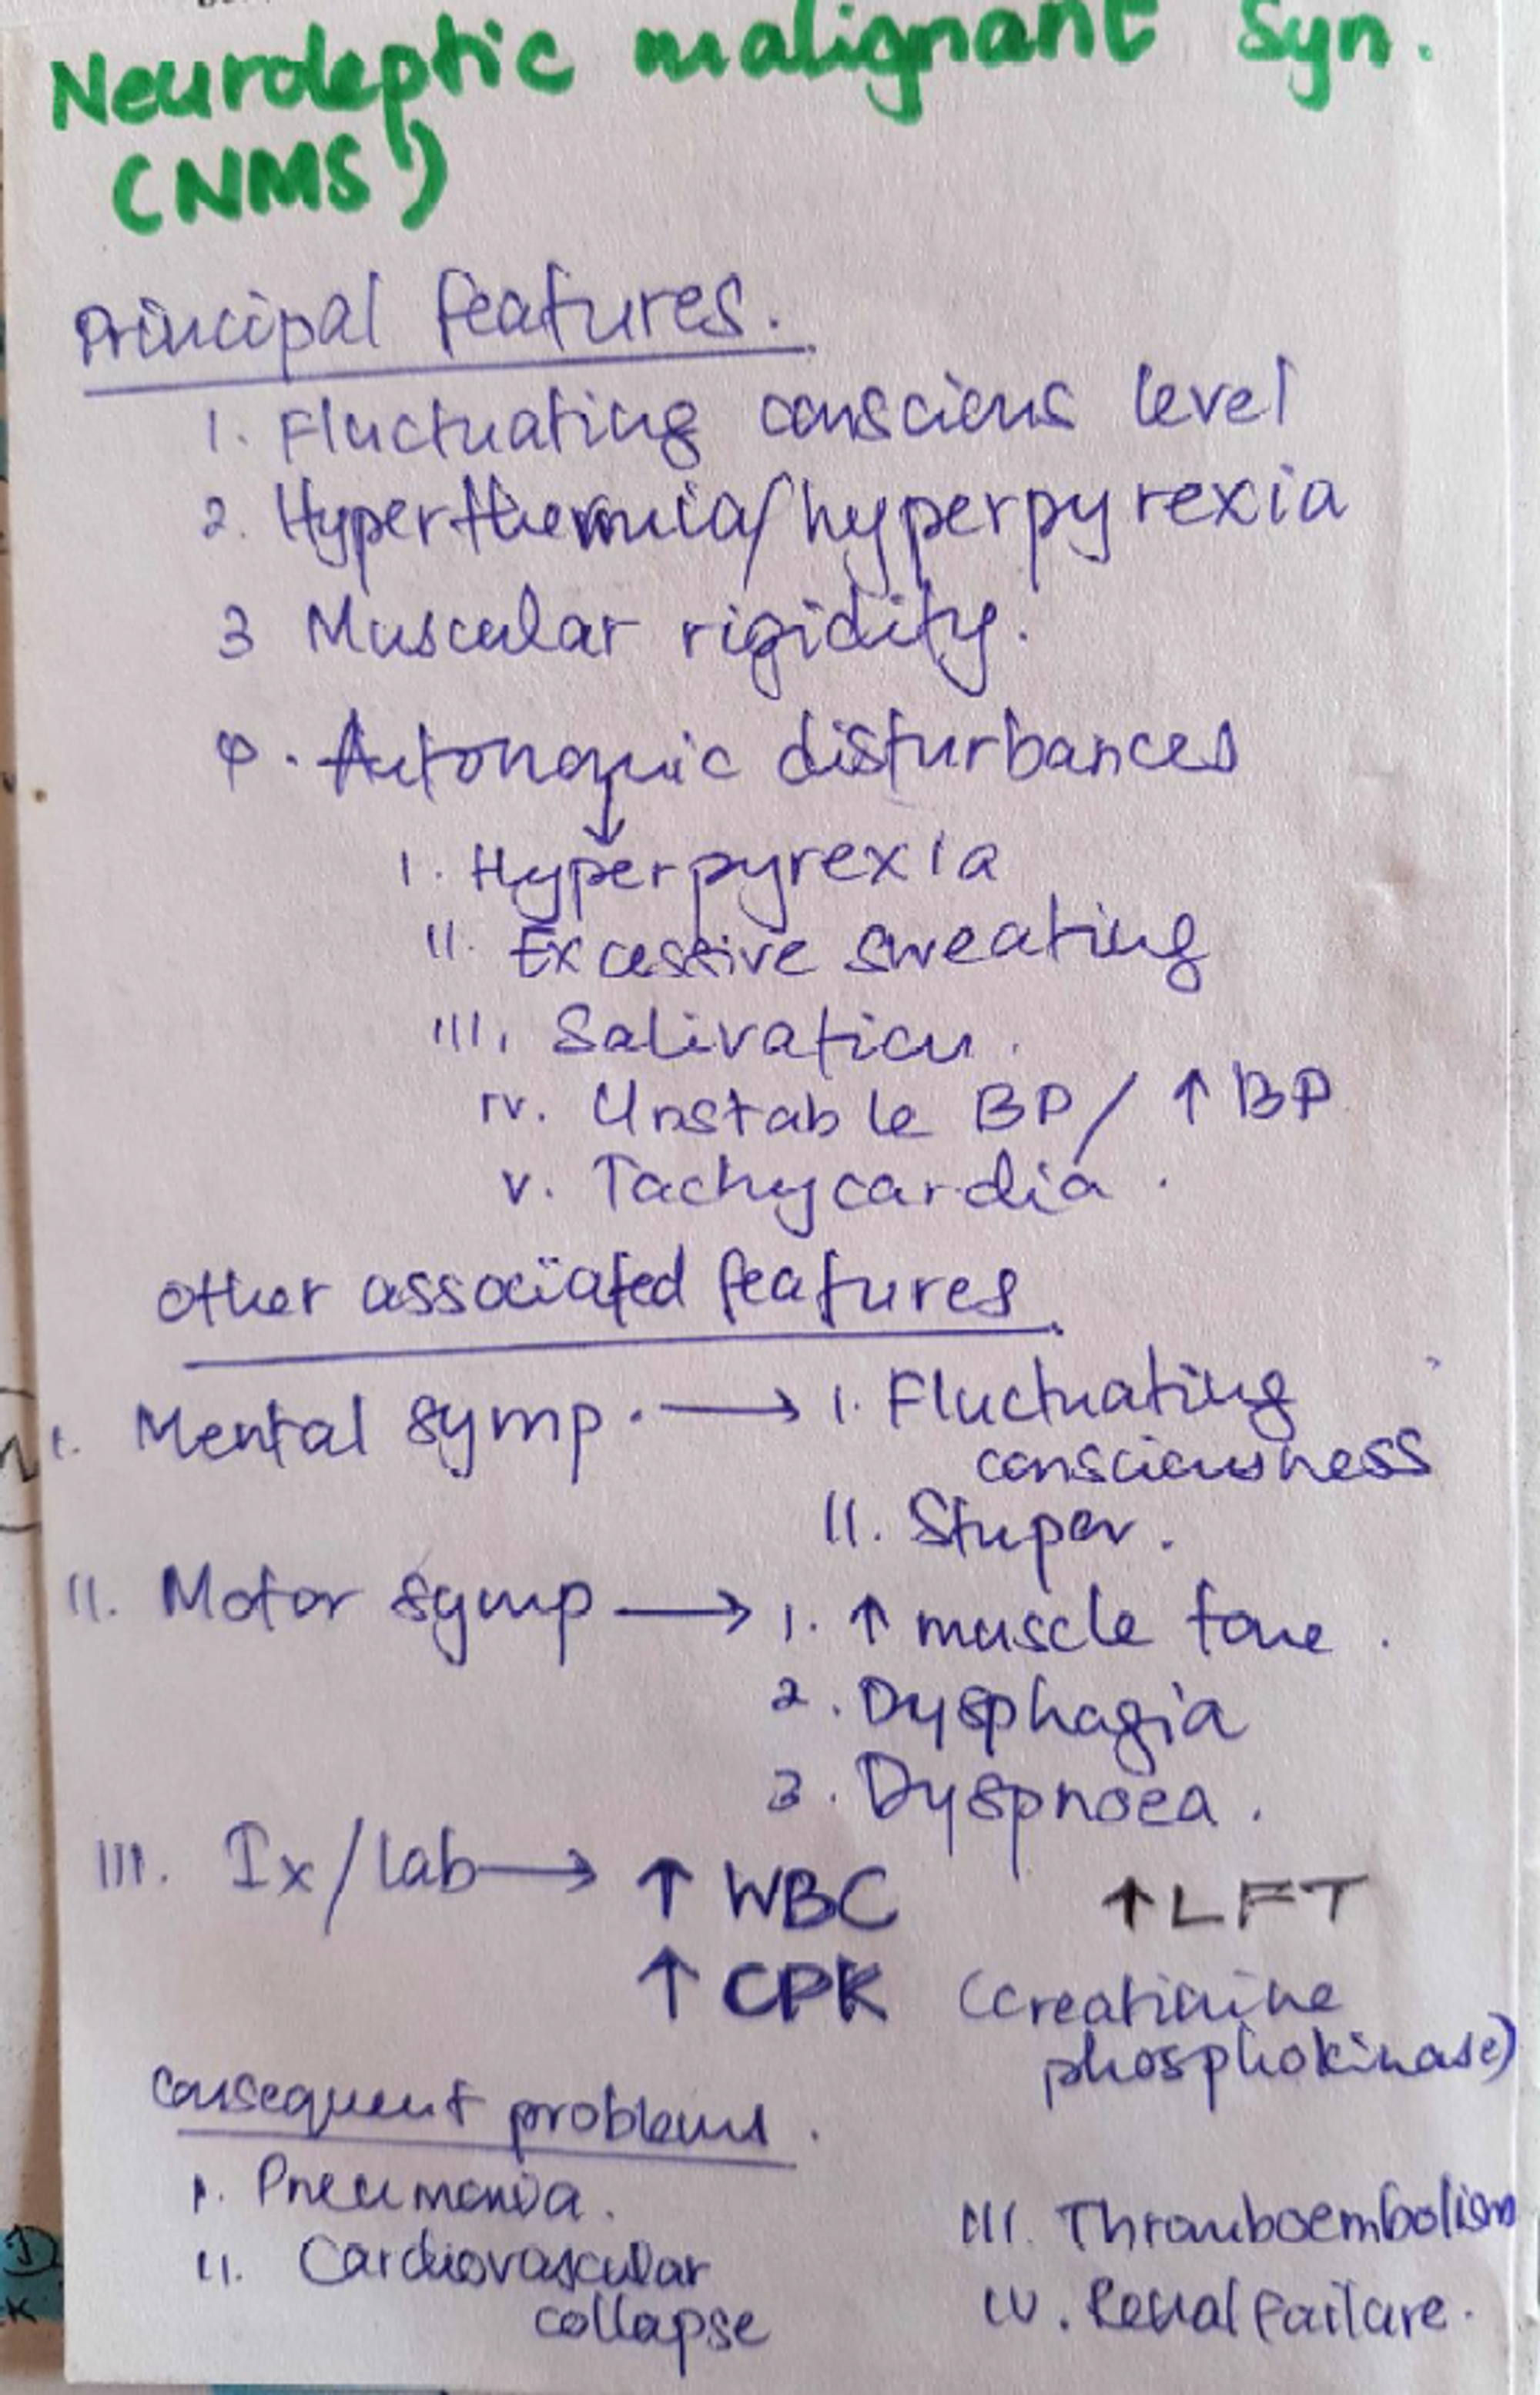 Neuroleptic malignant Syn.
(NMS)
Principal features.
1. Fluctuating conscious level
2. Hyperthermia/hyperpyrexia
3 Muscular rigidity.
4. Autonomic disturbances
↓
I. Hyperpyrexia
II. Excessive sweating
III. Salivation.
IV. Unstable BP/ ↑ BP
V. Tachycardia.
Other associated features.
I. Mental symp. → I. Fluctuating
consciousness
II. Stupor.
II. Motor symp → 1. ↑ muscle tone.
2. Dysphagia
3. Dyspnoea.
III. Ix/lab → ↑ WBC ↑ LFT
↑ CPK (creatinine
phosphokinase)
Consequent problems.
I. Pneumonia.
II. Cardiovascular
collapse
III. Thromboembolism
IV. Renal Failure.